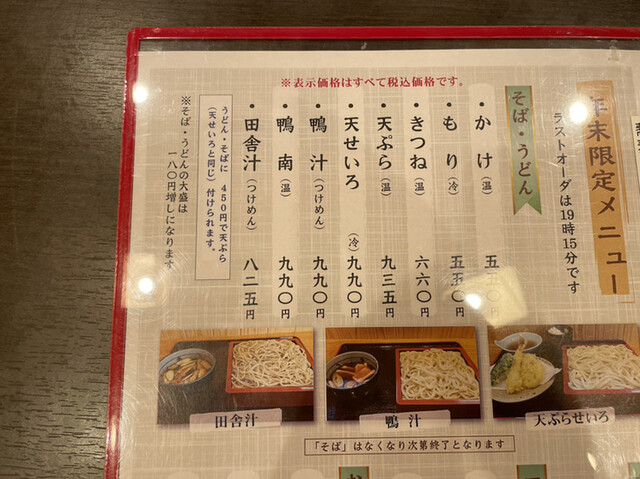 ※表示価格はすべて税込価格です。
年末限定メニュー
ラストオーダは19時15分です
そば・うどん
・かけ(温) 五五〇円
・もり(冷) 五五〇円
・きつね(温) 六六〇円
・天ぷら(温) 九三五円
・天せいろ(冷) 九九〇円
・鴨汁(つけめん) 九九〇円
・鴨南(温) 九九〇円
・田舎汁(つけめん) 八二五円
うどん・そばに 450円で天ぷら
(天せいろと同じ) 付けられます。
※そば・うどんの大盛は
一八〇円増しになります
田舎汁
鴨汁
天ぷらせいろ
「そば」はなくなり次第終了となります